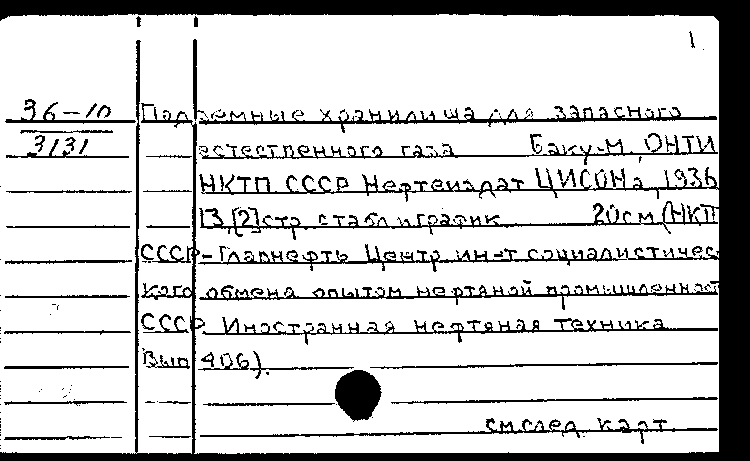 1
36-10
Подземные хранилища для запасного
3131
естественного газа Баку-М, ОНТИ
НКТП СССР Нефтеиздат ЦИСОНа, 1936
13,[2]стр. с табл. и график. 20см (НКТП
СССР-Главнефть Центр. ин-т социалистичес
кого обмена опытом нефтяной промышленност
СССР. Иностранная нефтяная техника
Вып 406).
см.след. карт.